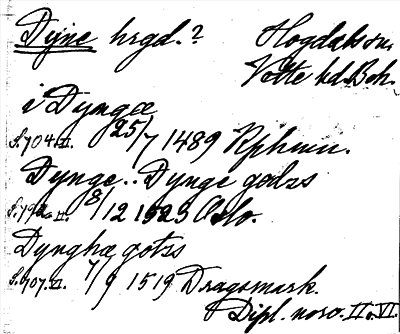 Dyne hrgd.? Hogdals sn.
Vätte hd. Boh.
i Dyngæ
S.704.II. 25/7 1489 Rphum.
Dynge.. Dynge godzs
S.792.II. 8/12 1523 Oslo.
Dynghæ gotss
S.707.VI. 7/9 1519 Dragsmark.
Dipl. norv. II o. VI.